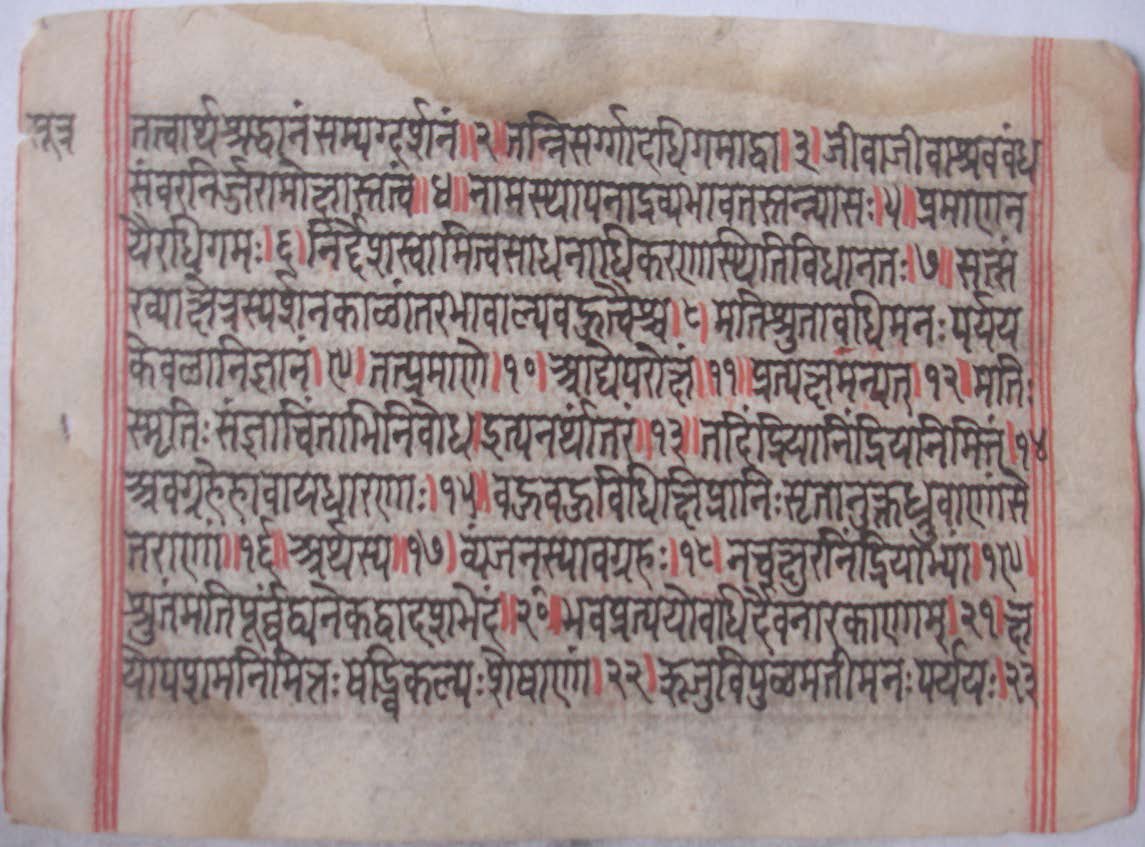 सूत्र
तत्वार्थश्रद्धानं सम्यग्दर्शनं॥२॥तन्निसर्ग्गादधिगमाद्वा।३।जीवाजीवाश्रवबंध
संवरनिर्ज्जरामोक्षास्तत्वं॥४॥नामस्थापनाद्रव्यभावतस्तन्न्यासः।५॥प्रमाणन
यैरधिगमः।६।निर्द्देशस्वामित्वसाधनाधिकरणस्थितिविधानतः।७॥सत्सं
ख्याक्षेत्रस्पर्शनकाळांतरभावाल्पबहुत्वैश्च।८।मतिश्रुतावधिमनःपर्यय
केवळानिज्ञानं।९।तत्प्रमाणे।१०।आद्येपरोक्षं।११।प्रत्यक्षमन्यत्।१२।मतिः
स्मृतिः संज्ञाचिंताभिनिबोध।इत्यनर्थांतरं।१३॥तदिंद्रियानिंद्रियनिमित्तं।१४
अवग्रहेहावायधारणाः।१५॥बहुबहुविधक्षिप्रानिःसृतानुक्तध्रुवाणांसे
तराणां॥१६॥अर्थस्य॥१७।व्यंजनस्यावग्रहः।१८।नचक्षुरनिंद्रियाभ्यां।१९।
श्रुतंमतिपूर्व्वंद्व्यनेकद्वादशभेदं॥२०॥भवप्रत्ययोवधिर्देवनारकाणाम्।२१।क्ष
योपशमनिमित्तः षड्विकल्पः शेषाणां।२२।ऋजुविपुळमतीमनःपर्ययः।२३